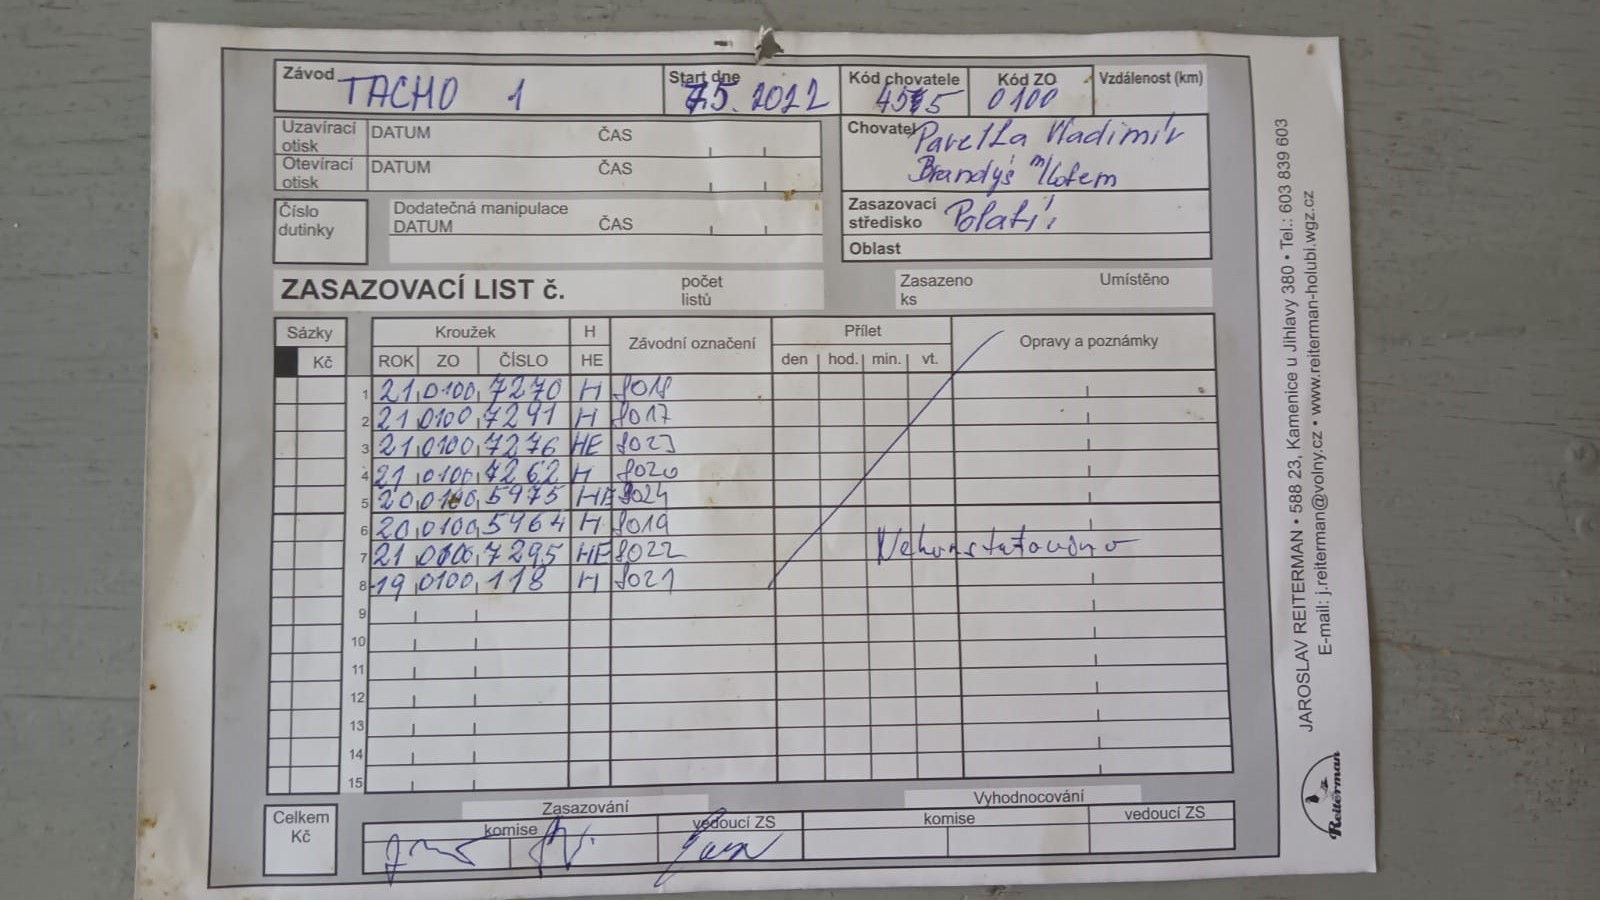 Závod TACHO 1 Start dne 7.5. 2022 Kód chovatele 4575 Kód ZO 0100 Vzdálenost (km)
Uzavírací otisk DATUM ČAS
Otevírací otisk DATUM ČAS
Chovatel Pavelka Vladimír
Brandýs n/Labem
Číslo dutinky
Dodatečná manipulace
DATUM ČAS
Zasazovací středisko
Oblast
ZASAZOVACÍ LIST č. počet listů Zasazeno ks Umístěno
Sázky Kroužek H Závodní označení Přílet Opravy a poznámky
Kč ROK ZO ČÍSLO HE den hod. min. vt.
1 21 0100 7270 H 8018
2 21 0100 7291 H 8017
3 21 0100 7276 HE 8023
4 21 0100 7262 H 8020
5 20 0100 5975 HE 8024
6 20 0100 5964 H 8019
7 21 0100 7295 HE 8022 Nekonstatováno
8 19 0100 118 H 8021
9
10
11
12
13
14
15
Celkem Kč
Zasazování Vyhodnocování
komise vedoucí ZS komise vedoucí ZS
JAROSLAV REITERMAN • 588 23, Kamenice u Jihlavy 380 • Tel.: 603 839 603
E-mail: j.reiterman@volny.cz • www.reiterman-holubi.wgz.cz
Reiterman